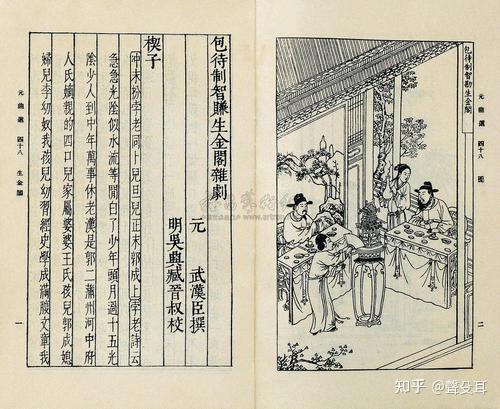 包待制智勘生金閣
元曲選 四十八 圖
二
包待制智賺生金閣雜劇
元 武漢臣撰
明吳興臧晉叔校
楔子
沖末扮孛老同卜兒旦兒正末郭成上孛老詩云
急急光陰似水流等閒白了少年頭月過十五光
陰少人到中年萬事休老漢是郭二蒲州河中府
人氏嫡親的四口兒家屬婆婆王氏孩兒郭成媳
婦兒李幼奴我孩兒幼習經史學成滿腹文章我
元曲選 四十八 生金閣
一
知乎 @聲殳耳